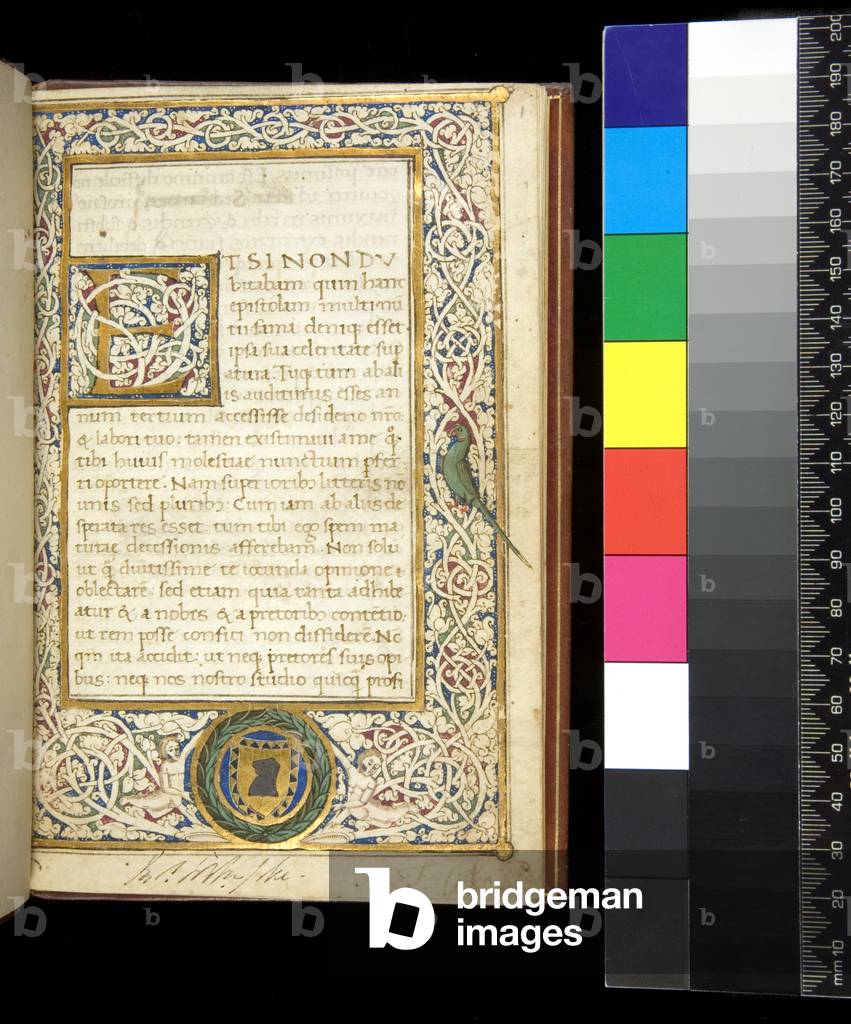 ETSINONDV
bitabam: quin hanc
epistolam multi nū
tii fama deniq; esset
ipsa sua celeritate sup
atura. Tuq; tum ab ali
is auditurus esses an
num tertium accessisse desiderio nr̄o:
& labori tuo: tamen existimaui a me
tibi huius molestiae nunctium ꝑfer
ri oportere. Nam superioribȝ litteris nō
unis sed pluribȝ: Cum iam ab aliis de
sperata res esset: tum tibi ego spem ma
turae decessionis afferebam. Non solū
ut ꝙ̄ diutissime te iocunda opinione
oblectarē: sed etiam quia tanta adhibe
atur & a nobis & a pretoribȝ contētio:
ut rem posse confici non diffiderē. Nc̄
qm̄ ita accidit: ut neq; pretores suis opi
bus: neq; nos nostro studio quicq̄ profi
b bridgeman
images
mm 10 20 30 40 50 60 70 80 90 100 110 120 130 140 150 160 170 180 190 200